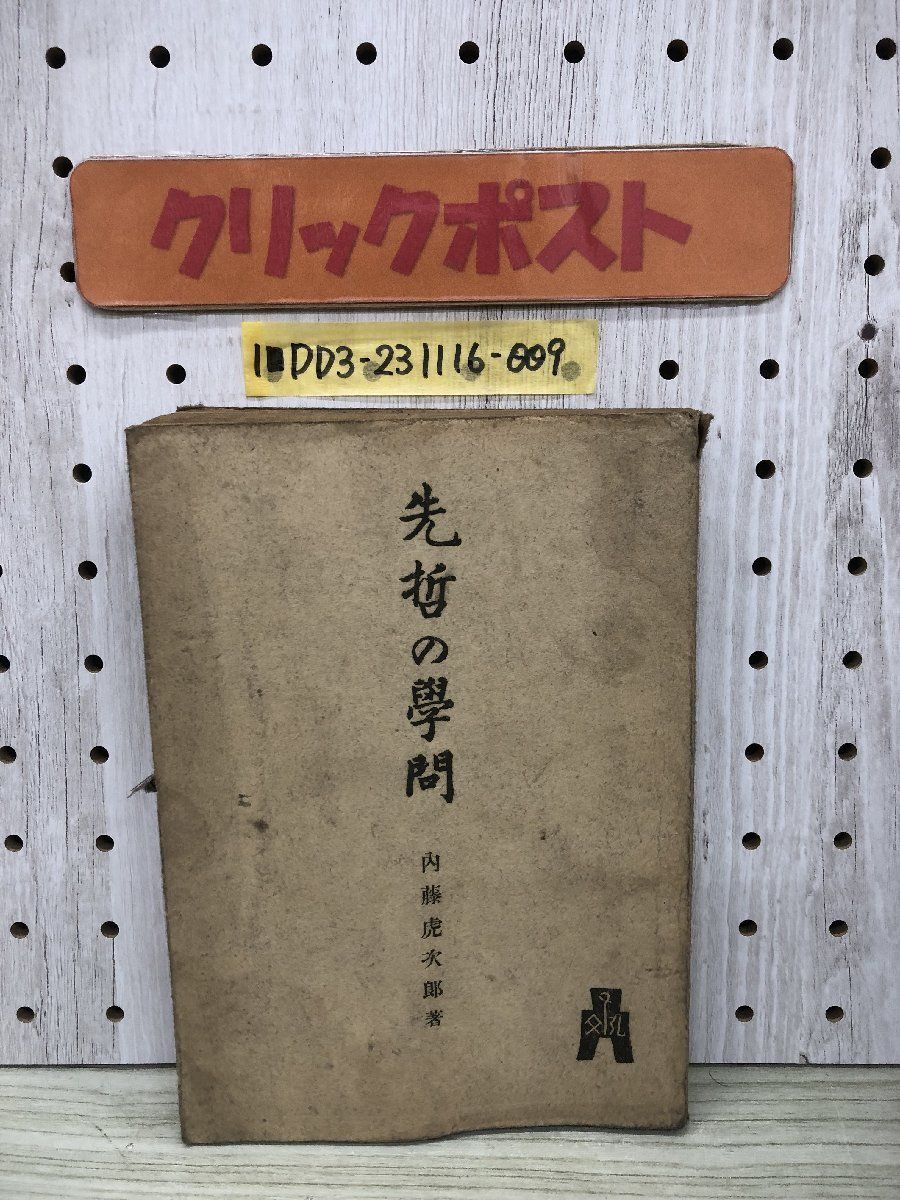 クリックポスト
1■DD3-231116-009
先哲の學問
内藤虎次郎著